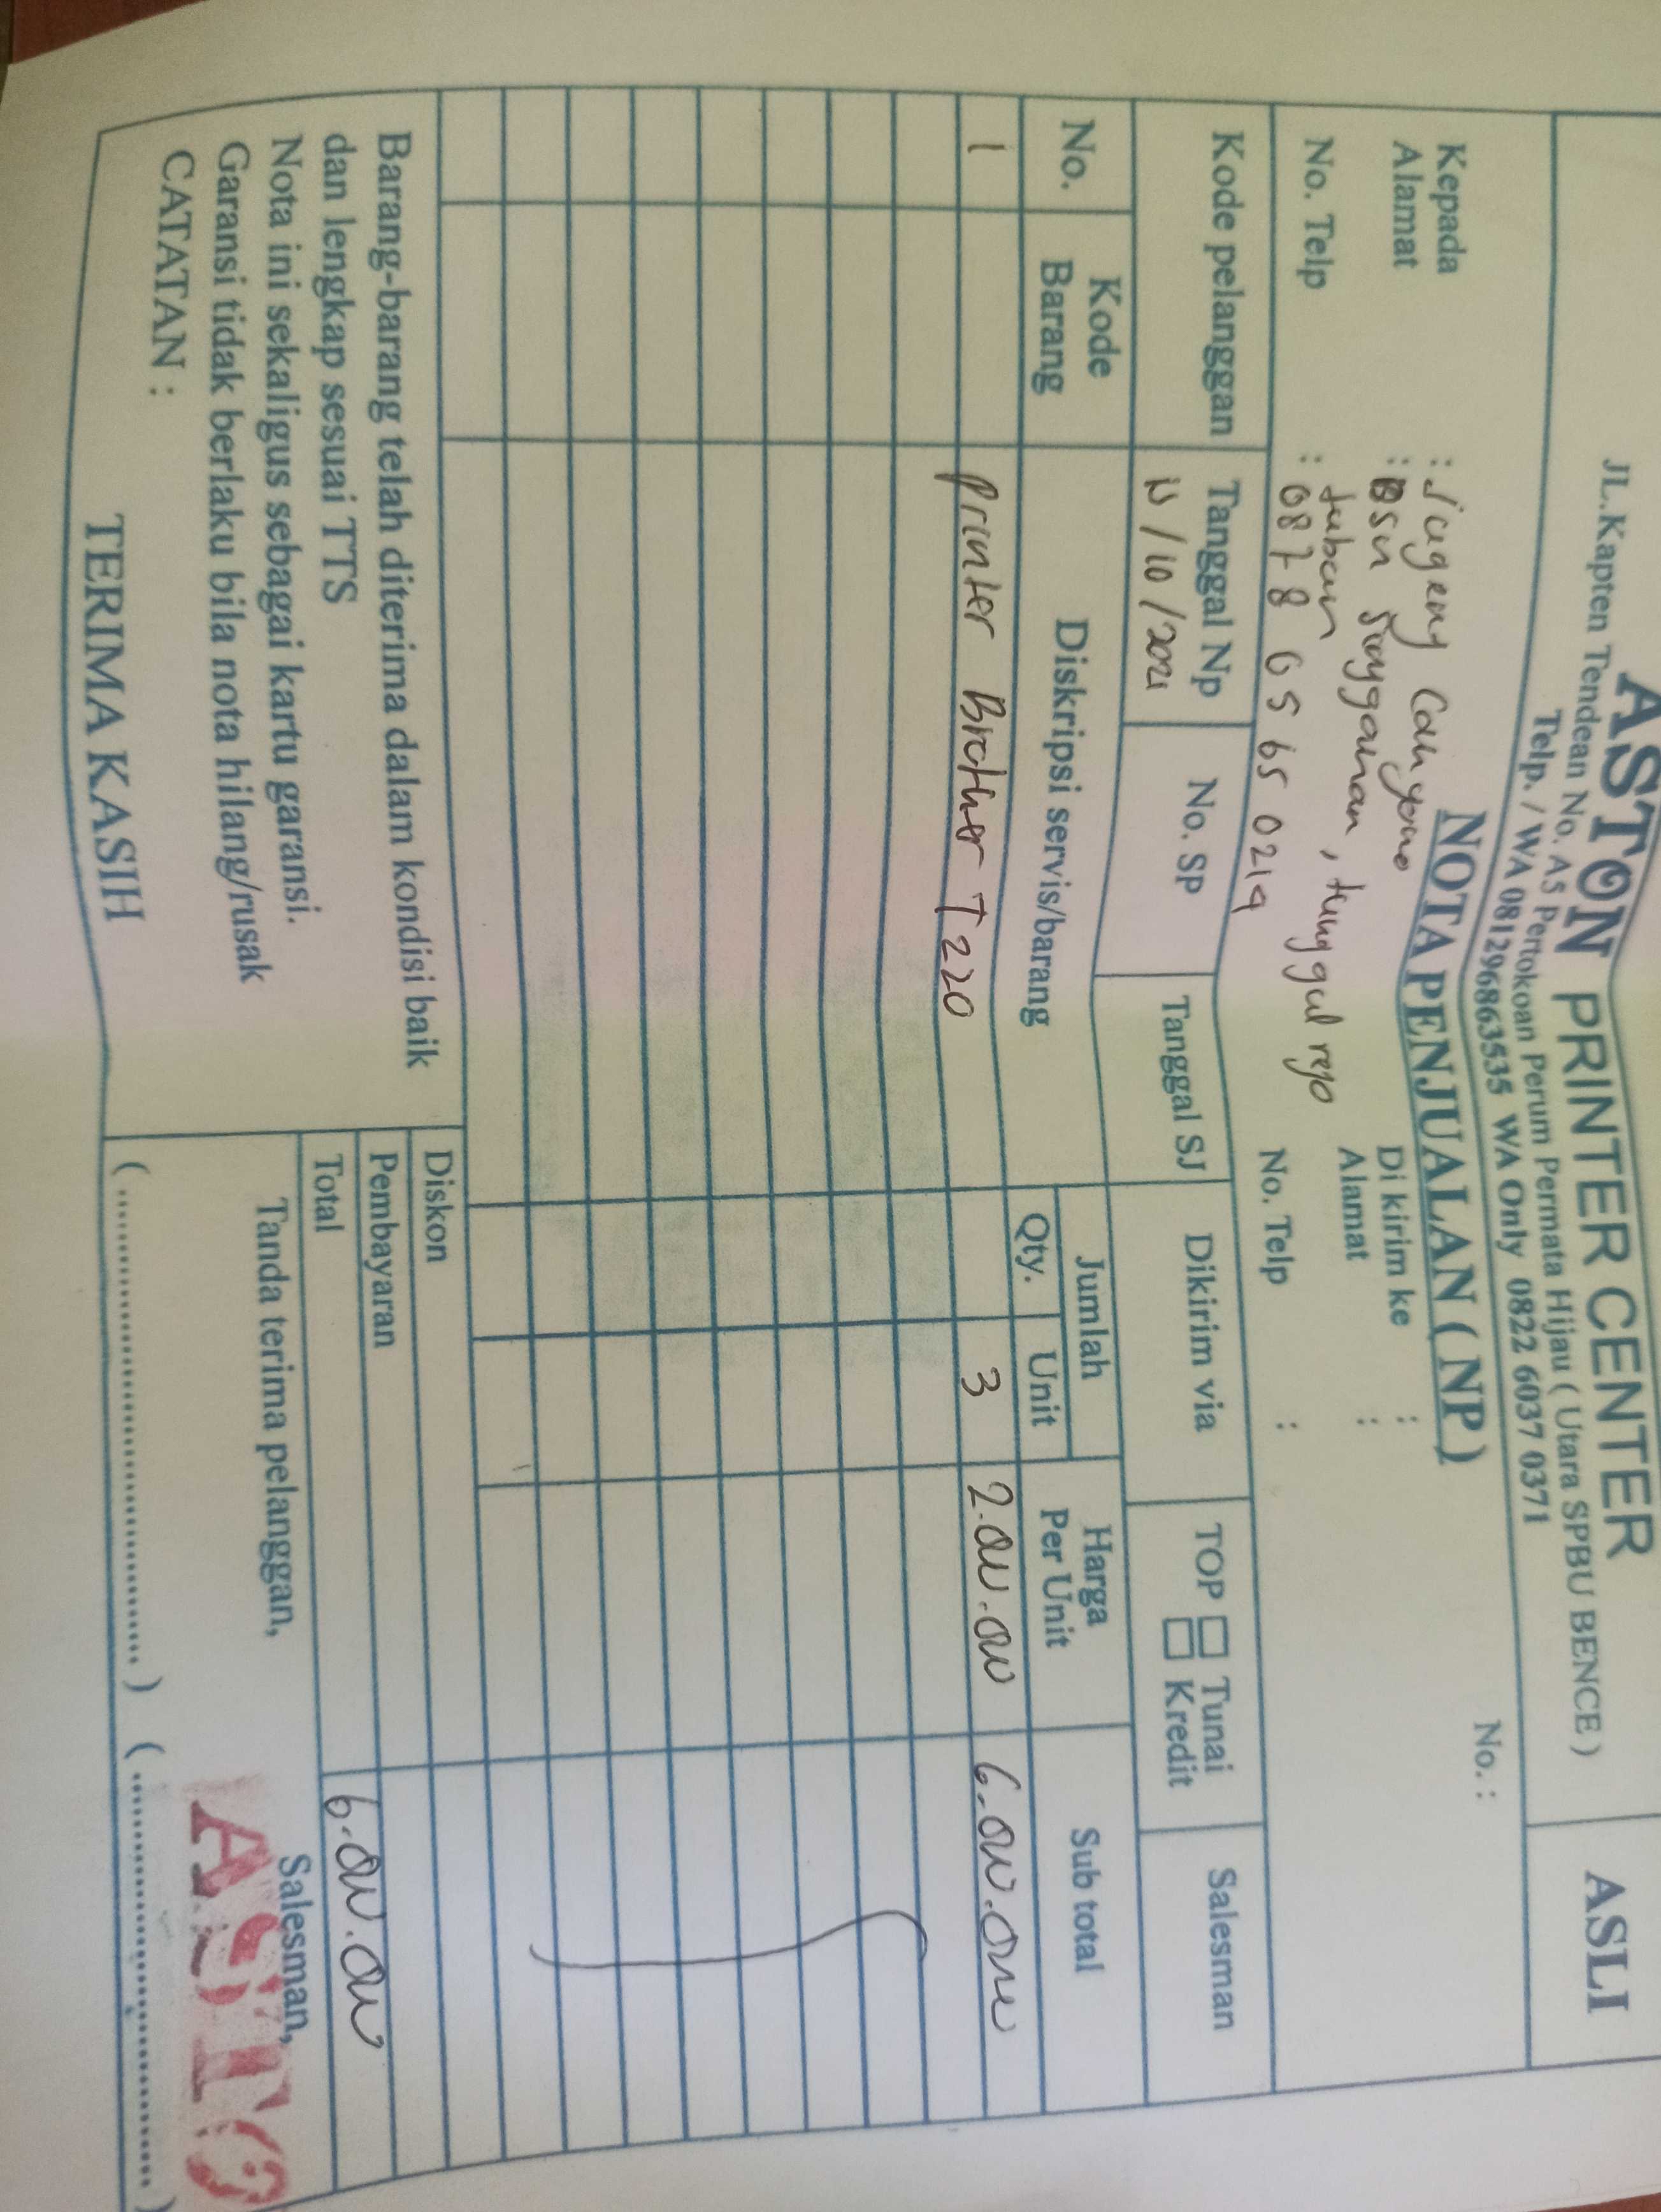 ASTON PRINTER CENTER
JL.Kapten Tendean No. A5 Pertokoan Perum Permata Hijau ( Utara SPBU BENCE )
Telp. / WA 081296863535 WA Only 0822 6037 0371
ASLI
NOTA PENJUALAN ( NP )
No. :
Kepada : Sugeng Cahyono
Alamat : Dsn Soygonan, tunggul rejo
tuban
No. Telp : 0878 6565 0219
Di kirim ke :
Alamat :
No. Telp :
Kode pelanggan Tanggal Np No. SP Tanggal SJ Dikirim via TOP Tunai Kredit Salesman
/10/2021
No. Kode Barang Diskripsi servis/barang Jumlah Qty. Unit Harga Per Unit Sub total
1 Printer Brother T220 3 2.000.000 6.000.000
Barang-barang telah diterima dalam kondisi baik
dan lengkap sesuai TTS
Nota ini sekaligus sebagai kartu garansi.
Garansi tidak berlaku bila nota hilang/rusak
CATATAN :
TERIMA KASIH
Diskon
Pembayaran
Total 6.000.000
Tanda terima pelanggan, Salesman,
ASTO
(..............................) (..............................)